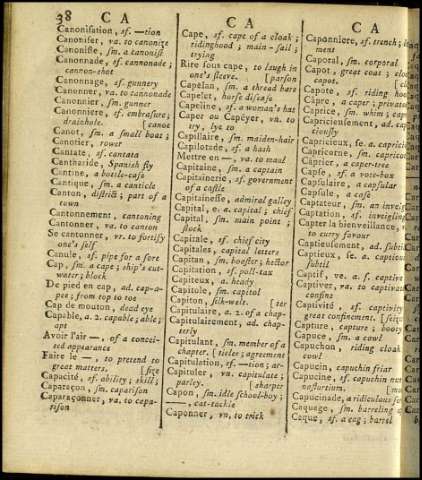 38 C A
Canonisation, sf. —tion
Canoniser, va. to canonize
Canoniste, sm. a canonist
Canonnade, sf. cannonade;
cannon-shot
Canonnage, sf. gunnery
Canonner, va. to cannonade
Canonnier, sm. gunner
Canonniere, sf. embrasure;
drainhole. [canot
Canot, sm. a small boat;
Canotier, rower
Cantate, sf. cantata
Cantharide, Spanish fly
Cantine, a bottle-case
Cantique, sm. a canticle
Canton, district; part of a
town
Cantonnement, cantoning
Cantonner, va. to canton
Se cantonner, vr. to fortify
one's self
Canule, sf. pipe for a sore
Cap, sm. a cape; ship's cut-
water; block
De pied en cap, ad. cap-a-
pee; from top to toe
Cap de mouton, dead eye
Capable, a. 2. capable; able;
apt
Avoir l'air —, of a concei-
ted appearance
Faire le —, to pretend to
great matters. [size
Capacité, sf. ability; skill;
Caparaçon, sm. caparison
Caparaçonner, va. to capa-
rison
C A
Cape, sf. cape of a cloak;
ridinghood; main-sail;
trying
Rire sous cape, to laugh in
one's sleeve. [parson
Capélan, sm. a thread bare
Capelet, horse disease
Capeline, sf. a woman's hat
Caper ou Capéyer, vn. to
try, lye to
Capillaire, sm. maiden-hair
Capilotade, sf. a hash
Mettre en —, va. to maul
Capitaine, sm. a captain
Capitainerie, sf. government
of a castle
Capitainesse, admiral galley
Capital, e. a. capital; chief
Capital, sm. main point;
stock
Capitale, sf. chief city
Capitales, capital letters
Capitan, sm. boaster; hector
Capitation, sf. poll-tax
Capiteux, a. heady
Capitole, sm. capitol
Capiton, silk-welt. [ter
Capitulaire, a. 2. of a chap-
Capitulairement, ad. chap-
terly
Capitulant, sm. member of a
chapter. [ticles; agreement
Capitulation, sf. —tion; ar-
Capituler, vn. capitulate;
parley. [sharper
Capon, sm. idle school-boy;
——, cat-tackle
Caponner, vn. to trick
C A
Caponniere, sf. trench;
ment
Caporal, sm. corporal
Capot, great coat;
capot
Capote, sf. riding
Câpre, a caper;
Caprice, sm. whim;
Capricieusement, ad.
ciously
Capricieux, se. a.
Capricorne, sm.
Câprier, a caper-tree
Capse, sf. a vote-box
Capsulaire, a capsular
Capsule, a case
Captateur, sm. an
Captation, sf.
Capter la bienveillance,
to curry favour
Captieusement, ad.
Captieux, se. a.
subtil
Captif, ve. a. f. captive
Captiver, va. to
confine
Captivité, sf.
great confinement.
Capture, capture; booty
Capuce, sm. a cowl
Capuchon, riding cloak
cowl
Capucin, capuchin friar
Capucine, sf. capuchin
nastortium.
Capucinade, a ridiculous
Caquage, sm. barreling
Caque, sf. a cag; barrel